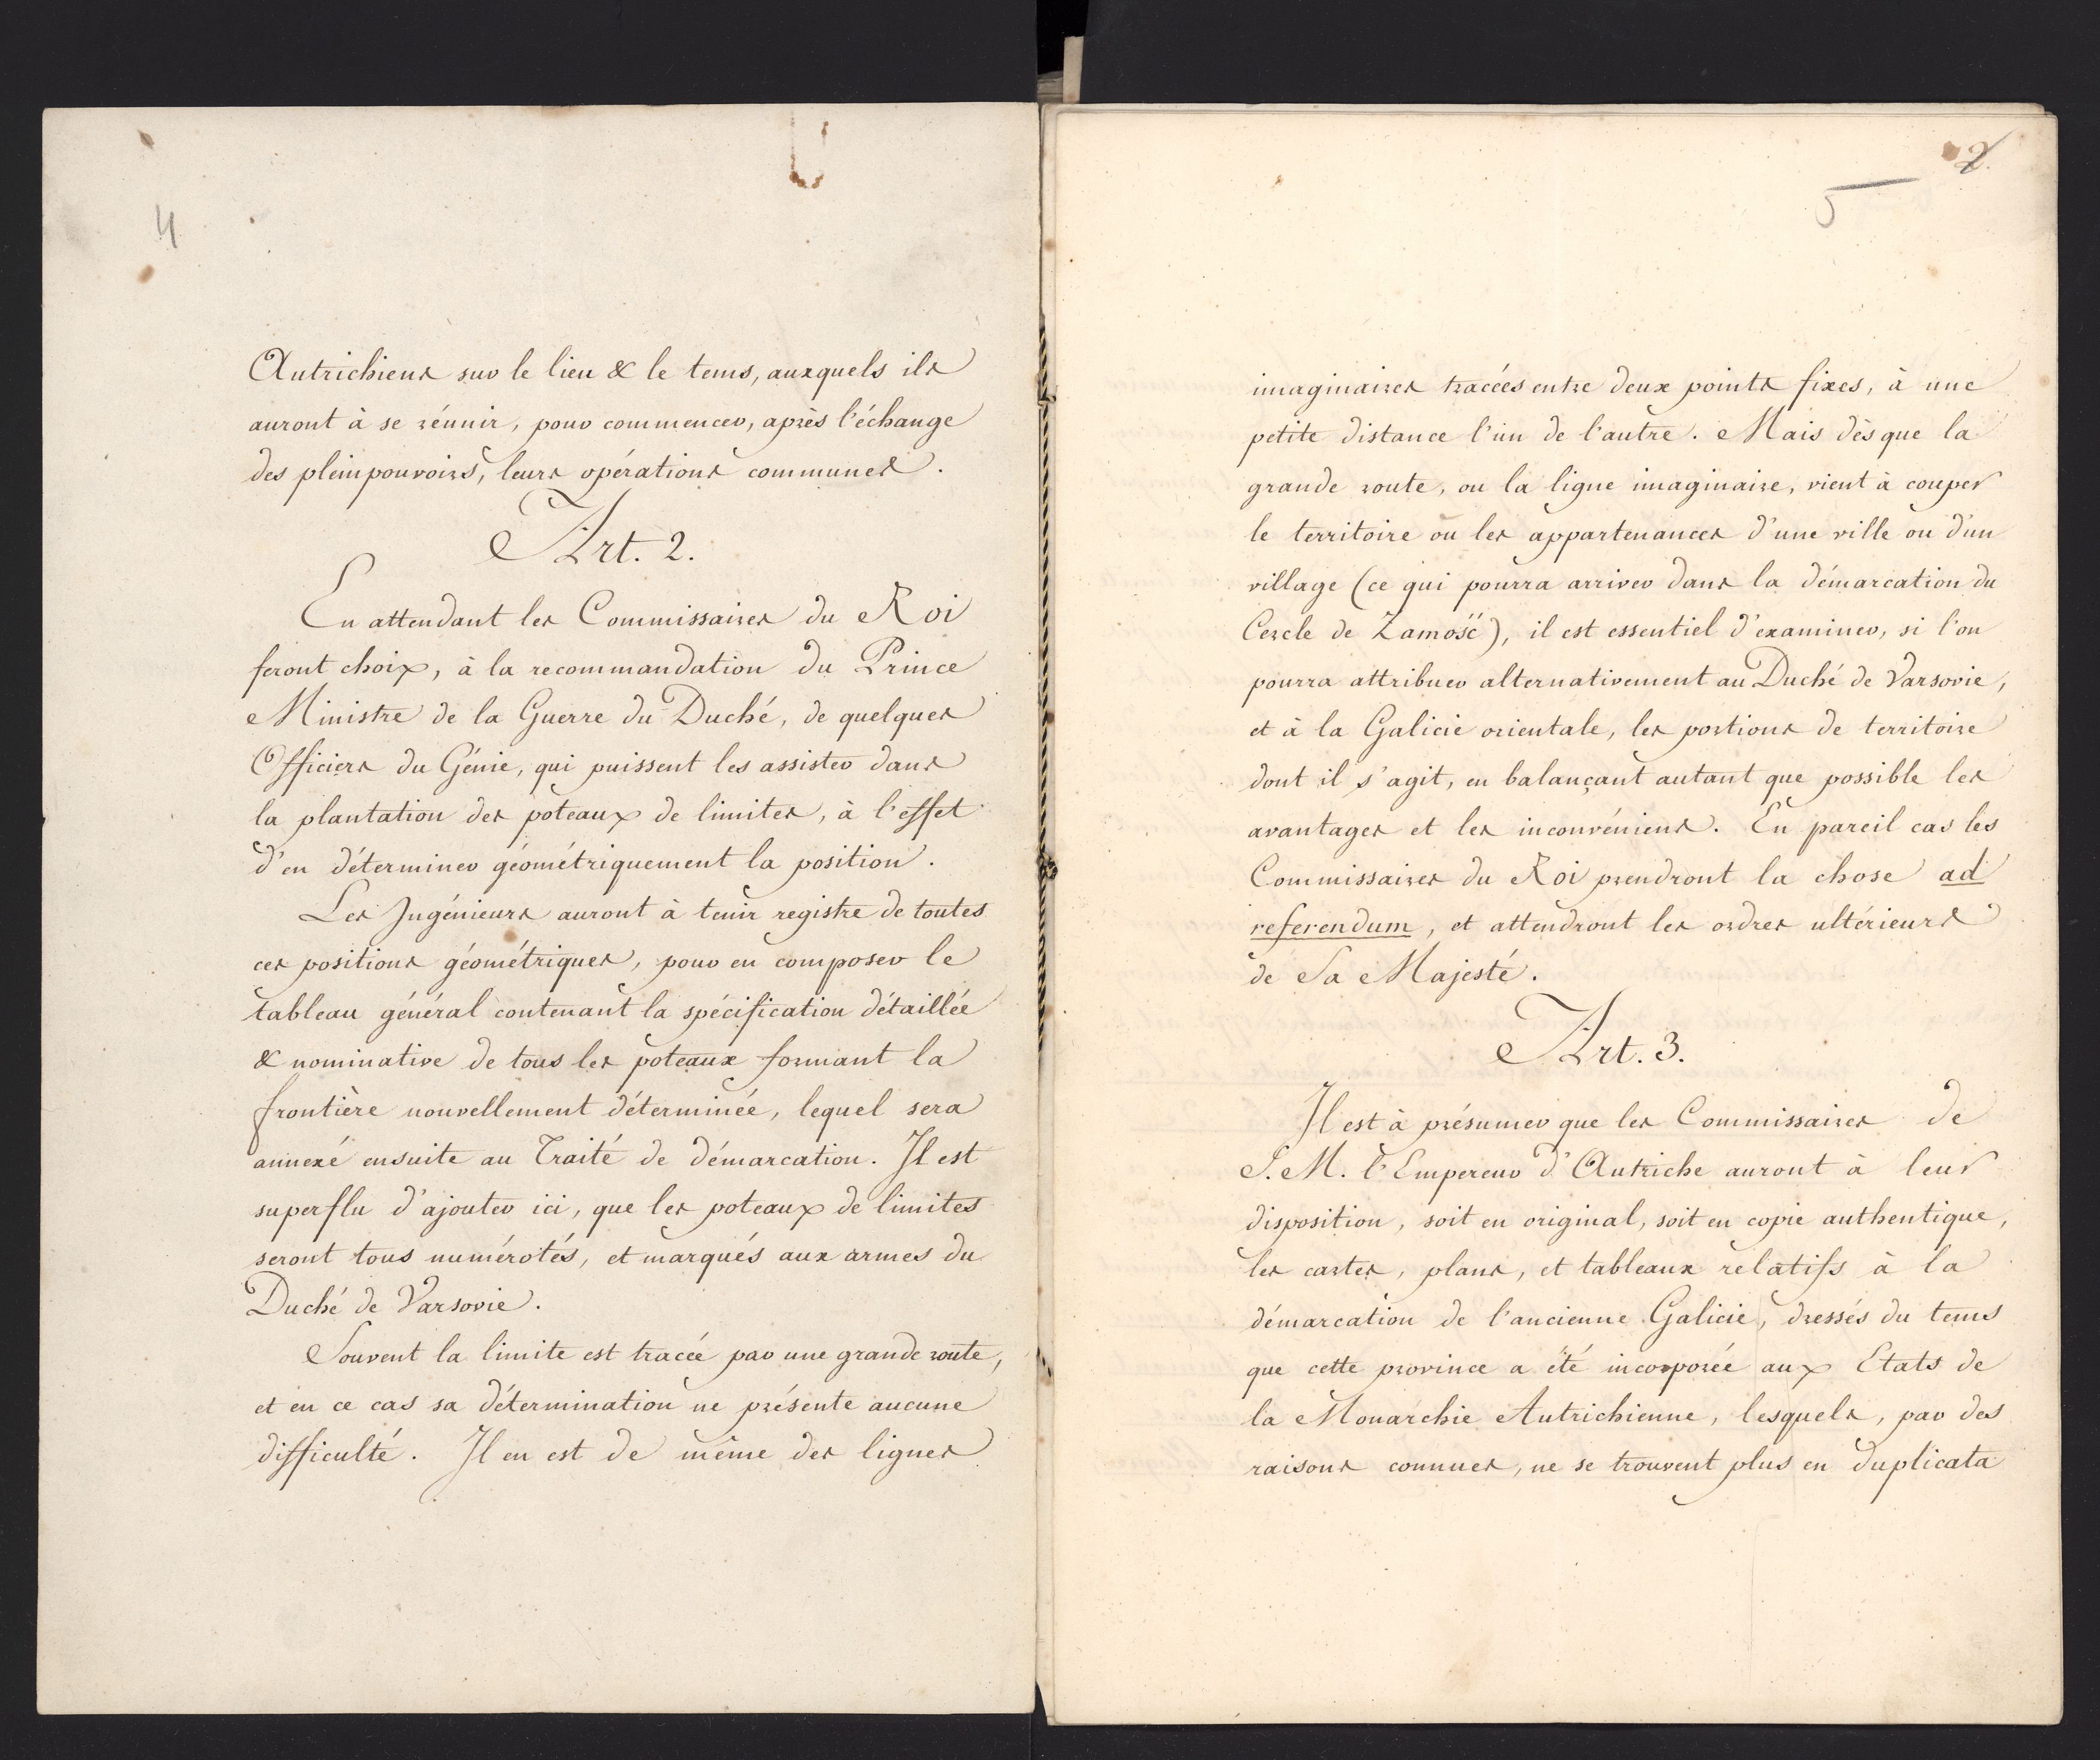 4
Autrichiens sur le lieu & le tems, auxquels ils
auront à se réunir, pour commencer, après l'échange
des pleinpouvoirs, leurs opérations communes.
Art. 2.
En attendant les Commissaires du Roi
feront choix, à la recommandation du Prince
Ministre de la Guerre du Duché, de quelques
Officiers du Génie, qui puissent les assister dans
la plantation des poteaux de limites, à l'effet
d'en déterminer géométriquement la position.
Les Ingénieurs auront à tenir registre de toutes
ces positions géométriques, pour en composer le
tableau général contenant la spécification détaillée
& nominative de tous les poteaux formant la
frontière nouvellement déterminée, lequel sera
annexé ensuite au Traité de démarcation. Il est
superflu d'ajouter ici, que les poteaux de limites
seront tous numérotés, et marqués aux armes du
Duché de Varsovie.
Souvent la limite est tracée par une grande route,
et en ce cas sa détermination ne présente aucune
difficulté. Il en est de même des lignes
2.
5
imaginaires tracées entre deux points fixes, à une
petite distance l'un de l'autre. Mais dès que la
grande route, ou la ligne imaginaire, vient à couper
le territoire ou les appartenances d'une ville ou d'un
village (ce qui pourra arriver dans la démarcation du
Cercle de Zamość), il est essentiel d'examiner, si l'on
pourra attribuer alternativement au Duché de Varsovie,
et à la Galicie orientale, les portions de territoire
dont il s'agit, en balançant autant que possible les
avantages et les inconvéniens. En pareil cas les
Commissaires du Roi prendront la chose ad
referendum, et attendront les ordres ultérieurs
de Sa Majesté.
Art. 3.
Il est à présumer que les Commissaires de
S. M. l'Empereur d'Autriche auront à leur
disposition, soit en original, soit en copie authentique,
les cartes, plans, et tableaux relatifs à la
démarcation de l'ancienne Galicie, dressés du tems
que cette province a été incorporée aux Etats de
la Monarchie Autrichienne, lesquels, par des
raisons connues, ne se trouvent plus en duplicata